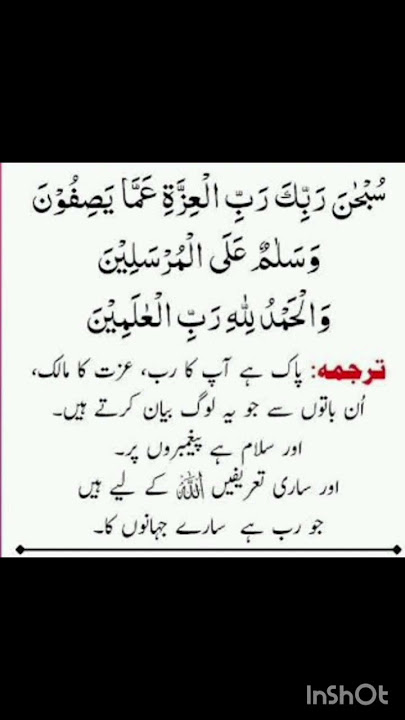 سُبْحٰنَ رَبِّكَ رَبِّ الْعِزَّةِ عَمَّا يَصِفُوْنَ
وَسَلٰمٌ عَلَى الْمُرْسَلِيْنَ
وَالْحَمْدُ لِلّٰهِ رَبِّ الْعٰلَمِيْنَ
ترجمہ: پاک ہے آپ کا رب، عزت کا مالک،
اُن باتوں سے جو یہ لوگ بیان کرتے ہیں۔
اور سلام ہے پیغمبروں پر۔
اور ساری تعریفیں اللہ کے لیے ہیں
جو رب ہے سارے جہانوں کا۔
InShOt